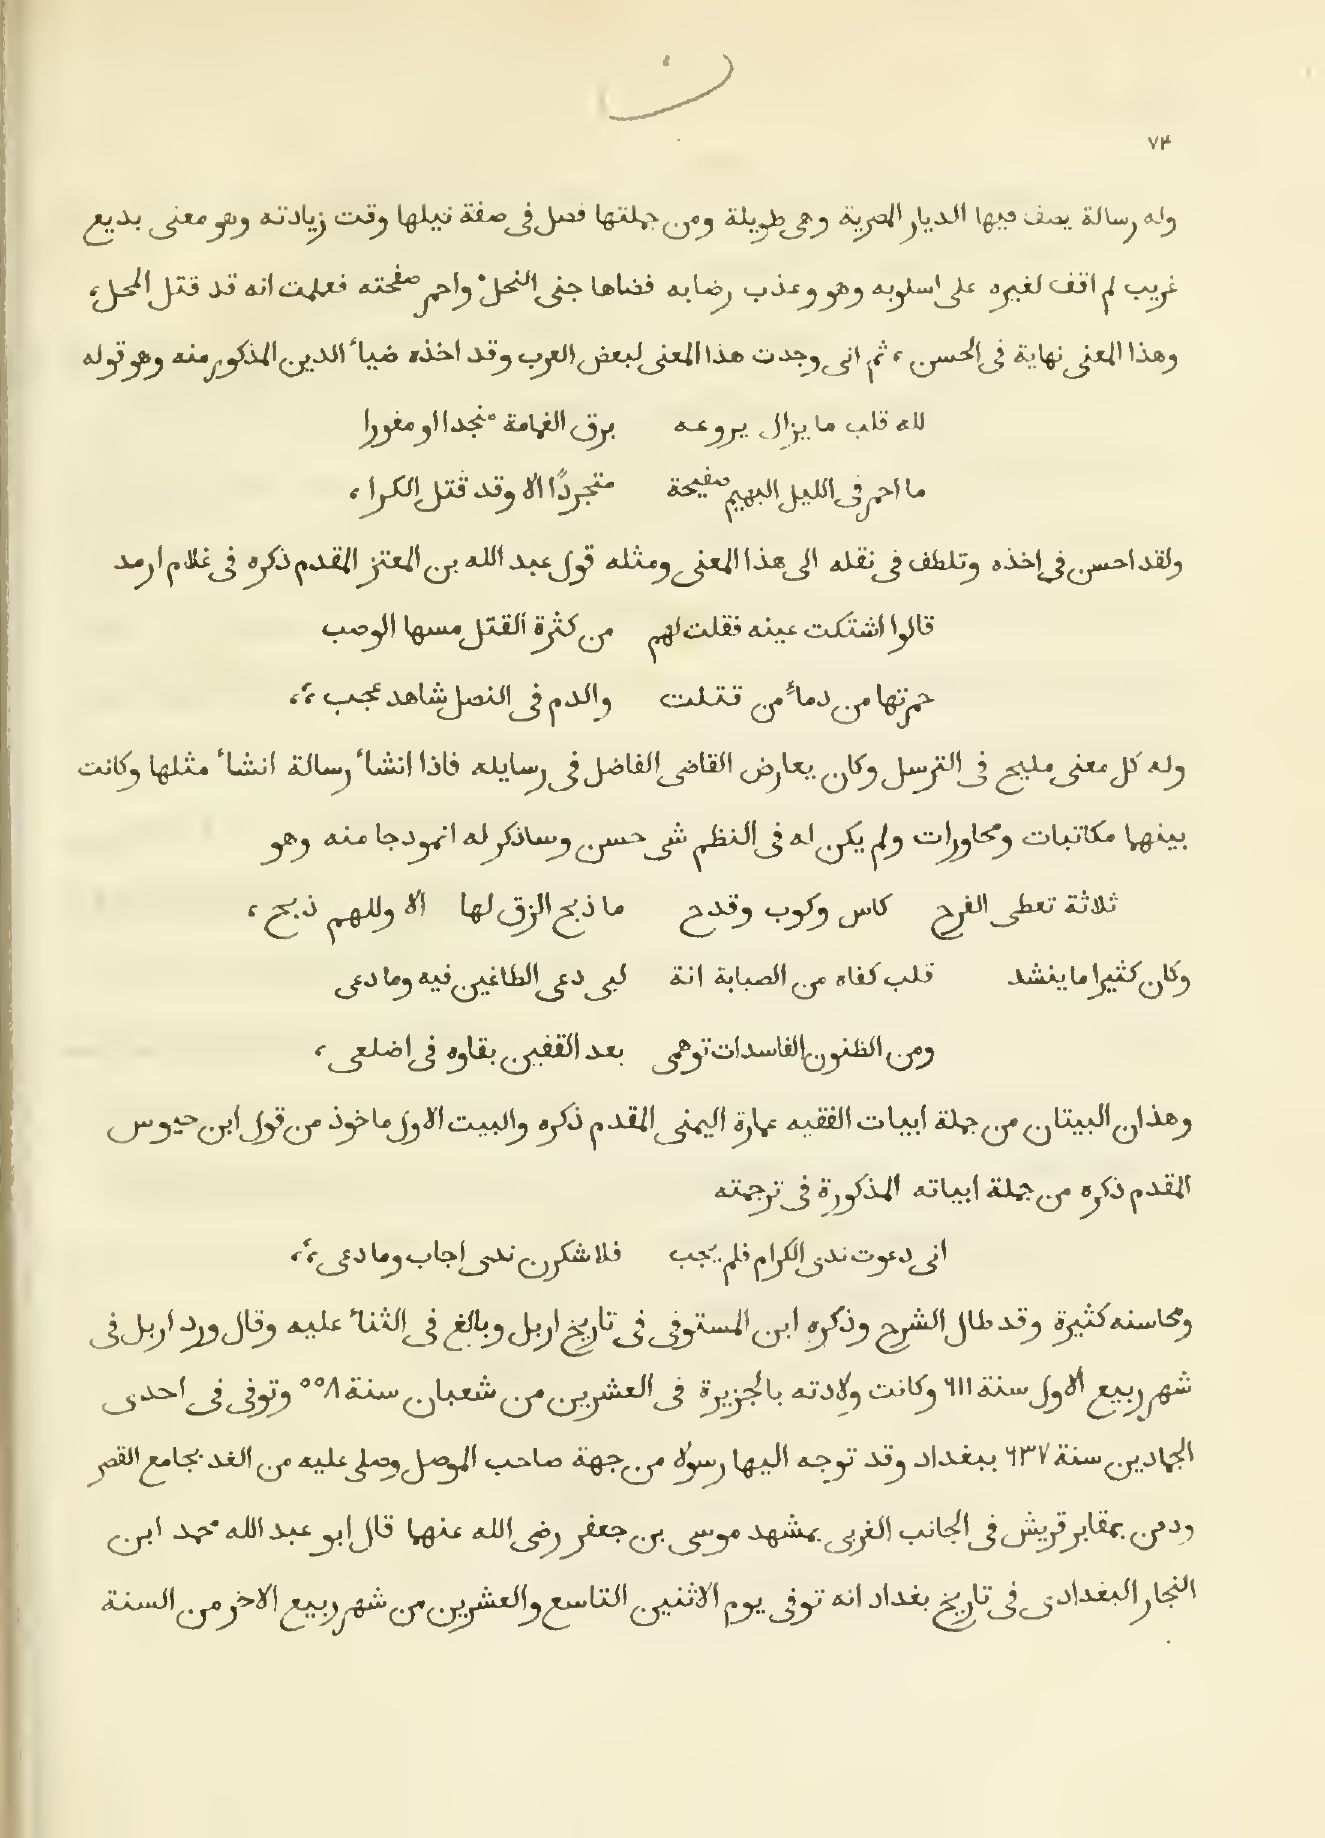 ن
٧٣
وله رسالة يصف فيها الديار المصرية وهى طويلة ومن جملتها فصل فى صفة نيلها وقت زيادته وهو معنى بديع
غريب لم اقف لغيره على اسلوبه وهو وعذب رضابه فضاها جنى النحل واحمر صفحته فعلمت انه قد قتل المحل،
وهذا المعنى نهاية فى الحسن، ثم انى وجدت هذا المعنى لبعض العرب وقد اخذه ضياء الدين المذكور منه وهو قوله
لله قلب ما يزال يروعه برق الغمامة منجدا او مغورا
ما احمر فى الليل البهيم صفيحة متجردًا الا وقد قتل الكرا،
ولقد احسن فى اخذه وتلطف فى نقله الى هذا المعنى ومثله قول عبد الله بن المعتز المقدم ذكره فى غلام ارمد
قالوا اشتكت عينه فقلت لهم من كثرة القتل مسها الوصب
حمرتها من دماء من قتلت والدم فى النصل شاهد عجب،،
وله كل معنى مليح فى الترسل وكان يعارض القاضى الفاضل فى رسايله فاذا انشاء رسالة انشاء مثلها وكانت
بينهما مكاتبات ومحاورات ولم يكن له فى النظم شى حسن وساذكر له انموذجا منه وهو
ثلاثة تعطى الفرح كاس وكوب وقدح ما ذبح الزق لها الا وللهم ذبح،
وكان كثيرا ما ينشد قلب كفاه من الصبابة انة لبى دعى الطاغين فيه وما دعى
ومن الظنون الفاسدات توهمى بعد القفين بقاوه فى اضلعى،
وهذان البيتان من جملة ابيات الفقيه عمارة اليمنى المقدم ذكره والبيت الاول ماخوذ من قول ابن حيوس
المقدم ذكره من جملة ابياته المذكورة فى ترجمته
انى دعوت ندى الكرام فلم يجب فلاشكرن ندى اجاب وما دعى،،
ومحاسنه كثيرة وقد طال الشرح وذكره ابن المستوفى فى تاريخ اربل وبالغ فى الثناء عليه وقال ورد اربل فى
شهر ربيع الاول سنة ٦١١ وكانت ولادته بالجزيرة فى العشرين من شعبان سنة ٥٥٨ وتوفى فى احدى
الجمادين سنة ٦٣٧ ببغداد وقد توجه اليها رسولا من جهة صاحب الموصل وصلى عليه من الغد بجامع القصر
ودفن بمقابر قريش فى الجانب الغربى بمشهد موسى بن جعفر رضى الله عنهما قال ابو عبد الله محمد ابن
النجار البغدادى فى تاريخ بغداد انه توفى يوم الاثنين التاسع والعشرين من شهر ربيع الاخر من السنة